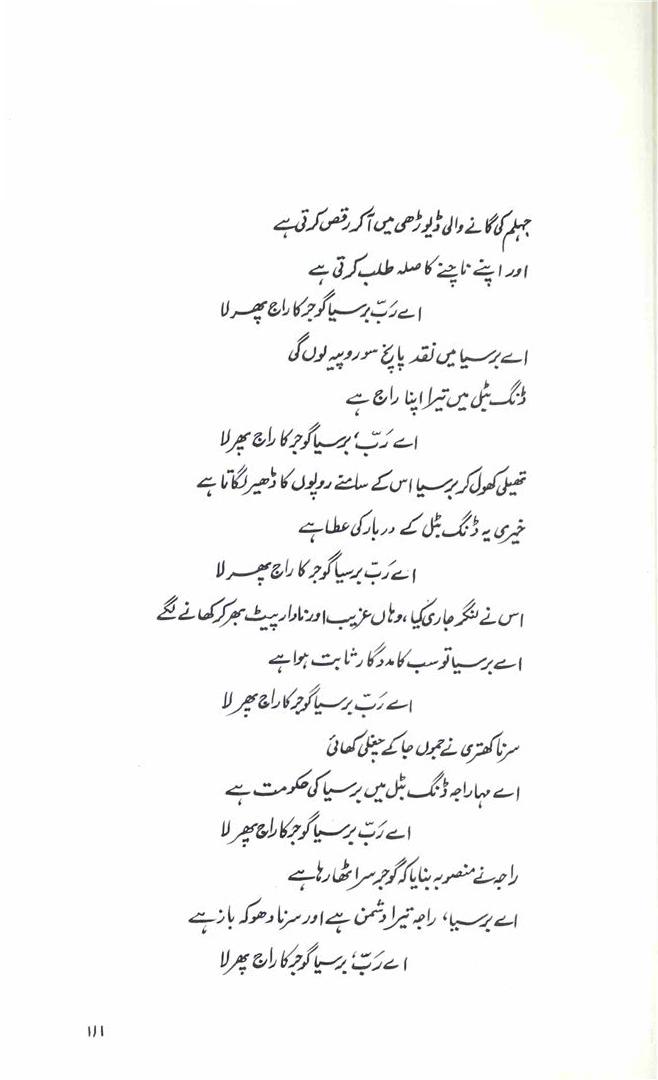 جہلم کی گانے والی ڈیوڑھی میں آ کر رقص کرتی ہے
اور اپنے ناچنے کا صلہ طلب کرتی ہے
اے رَبّ برسیا گوجر کا راج پھر لا
اے برسیا میں نقد پانچ سو روپیہ لوں گی
ڈنگ بٹلی میں تیرا اپنا راج ہے
اے رَبّ، برسیا گوجر کا راج پھر لا
تھیلی کھول کر برسیا اس کے سامنے روپوں کا ڈھیر لگاتا ہے
خیری یہ ڈنگ بٹل کے دربار کی عطا ہے
اے رَبّ برسیا گوجر کا راج پھر لا
اس نے لنگر جاری کیا، وہاں غریب اور نادار پیٹ بھر کر کھانے لگے
اے برسیا تو سب کا مددگار ثابت ہوا ہے
اے رَبّ برسیا گوجر کا راج پھر لا
سرنا کھتری نے جموں جا کے چغلی کھائی
اے مہاراجہ ڈنگ بٹل میں برسیا کی حکومت ہے
اے رَبّ برسیا گوجر کا راج پھر لا
راجہ نے منصوبہ بنایا کہ گوجر سر اٹھا رہا ہے
اے برسیا، راجہ تیرا دشمن ہے اور سرنا دھوکہ باز ہے
اے رَبّ، برسیا گوجر کا راج پھر لا
۱۱۱